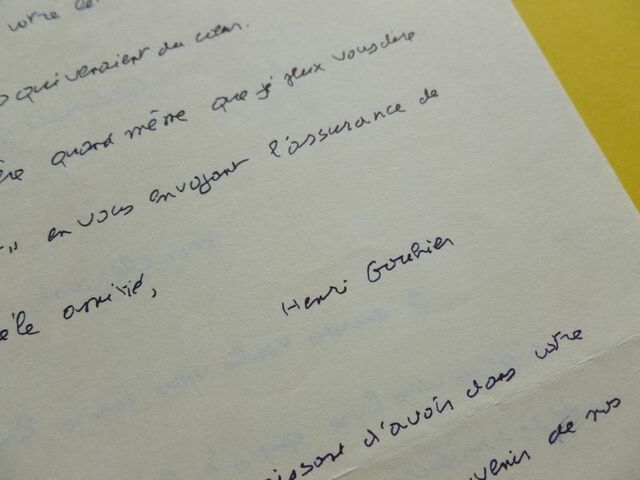 votre
qui venaient du cœur.
quand même que je peux vous dire
" en vous envoyant l'assurance de
amitié,
Henri Gouhier
d'avoir dans votre
de nos